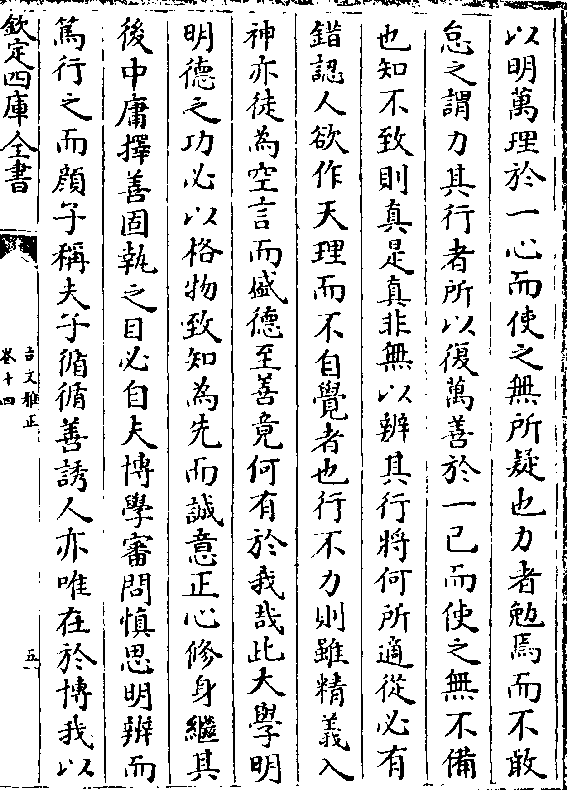 以明萬理於一心而使之無所疑也力者勉焉而不敢
怠之謂力其行者所以復萬善於一已而使之無不備
也知不致則真是真非無以辨其行將何所適從必有
錯認人欲作天理而不自覺者也行不力則雖精義入
神亦徒為空言而盛德至善竟何有於我哉此大學明
明德之功必以格物致知為先而誠意正心修身繼其
後中庸擇善固執之目必自夫博學審問慎思明辨而
篤行之而顔子稱夫子循循善誘人亦唯在於博我以
欽定四庫全書
古文雅正
卷十四
五